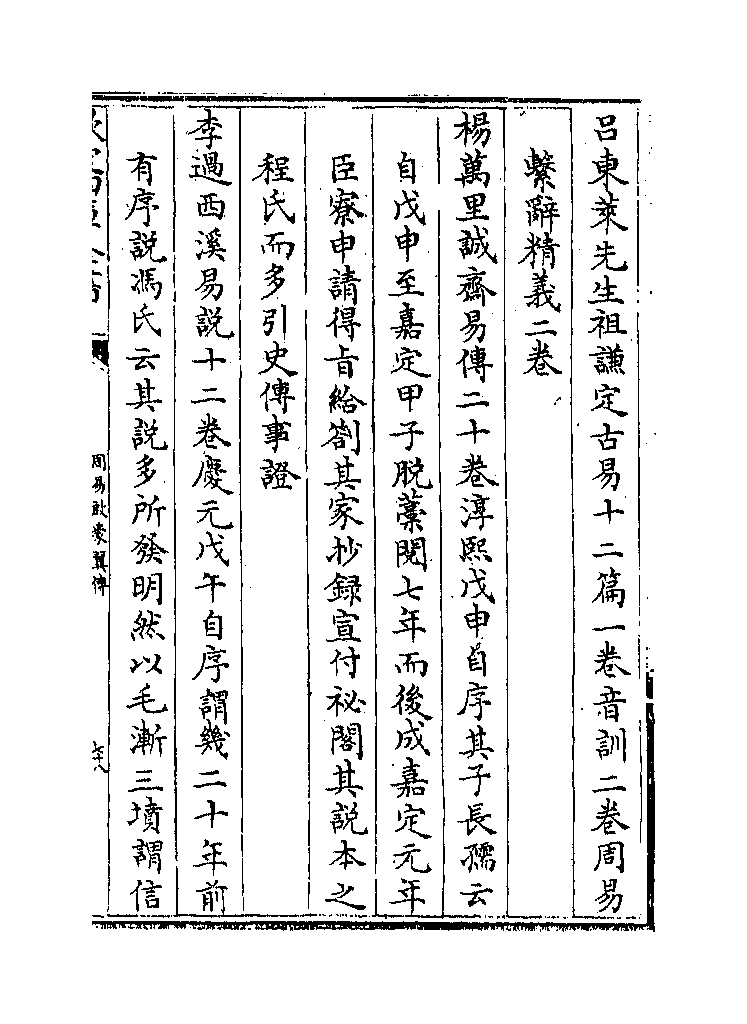 吕東萊先生祖謙定古易十二篇一卷音訓二卷周易
繫辭精義二卷
楊萬里誠齋易傳二十卷淳熙戊申自序其子長孺云
自戊申至嘉定甲子脱藁閱七年而後成嘉定元年
臣寮申請得旨給劄其家抄録宣付祕閣其説本之
程氏而多引史傳事證
李過西溪易説十二卷慶元戊午自序謂幾二十年前
有序説馮氏云其説多所發明然以毛漸三墳謂信
周易啟蒙翼傳